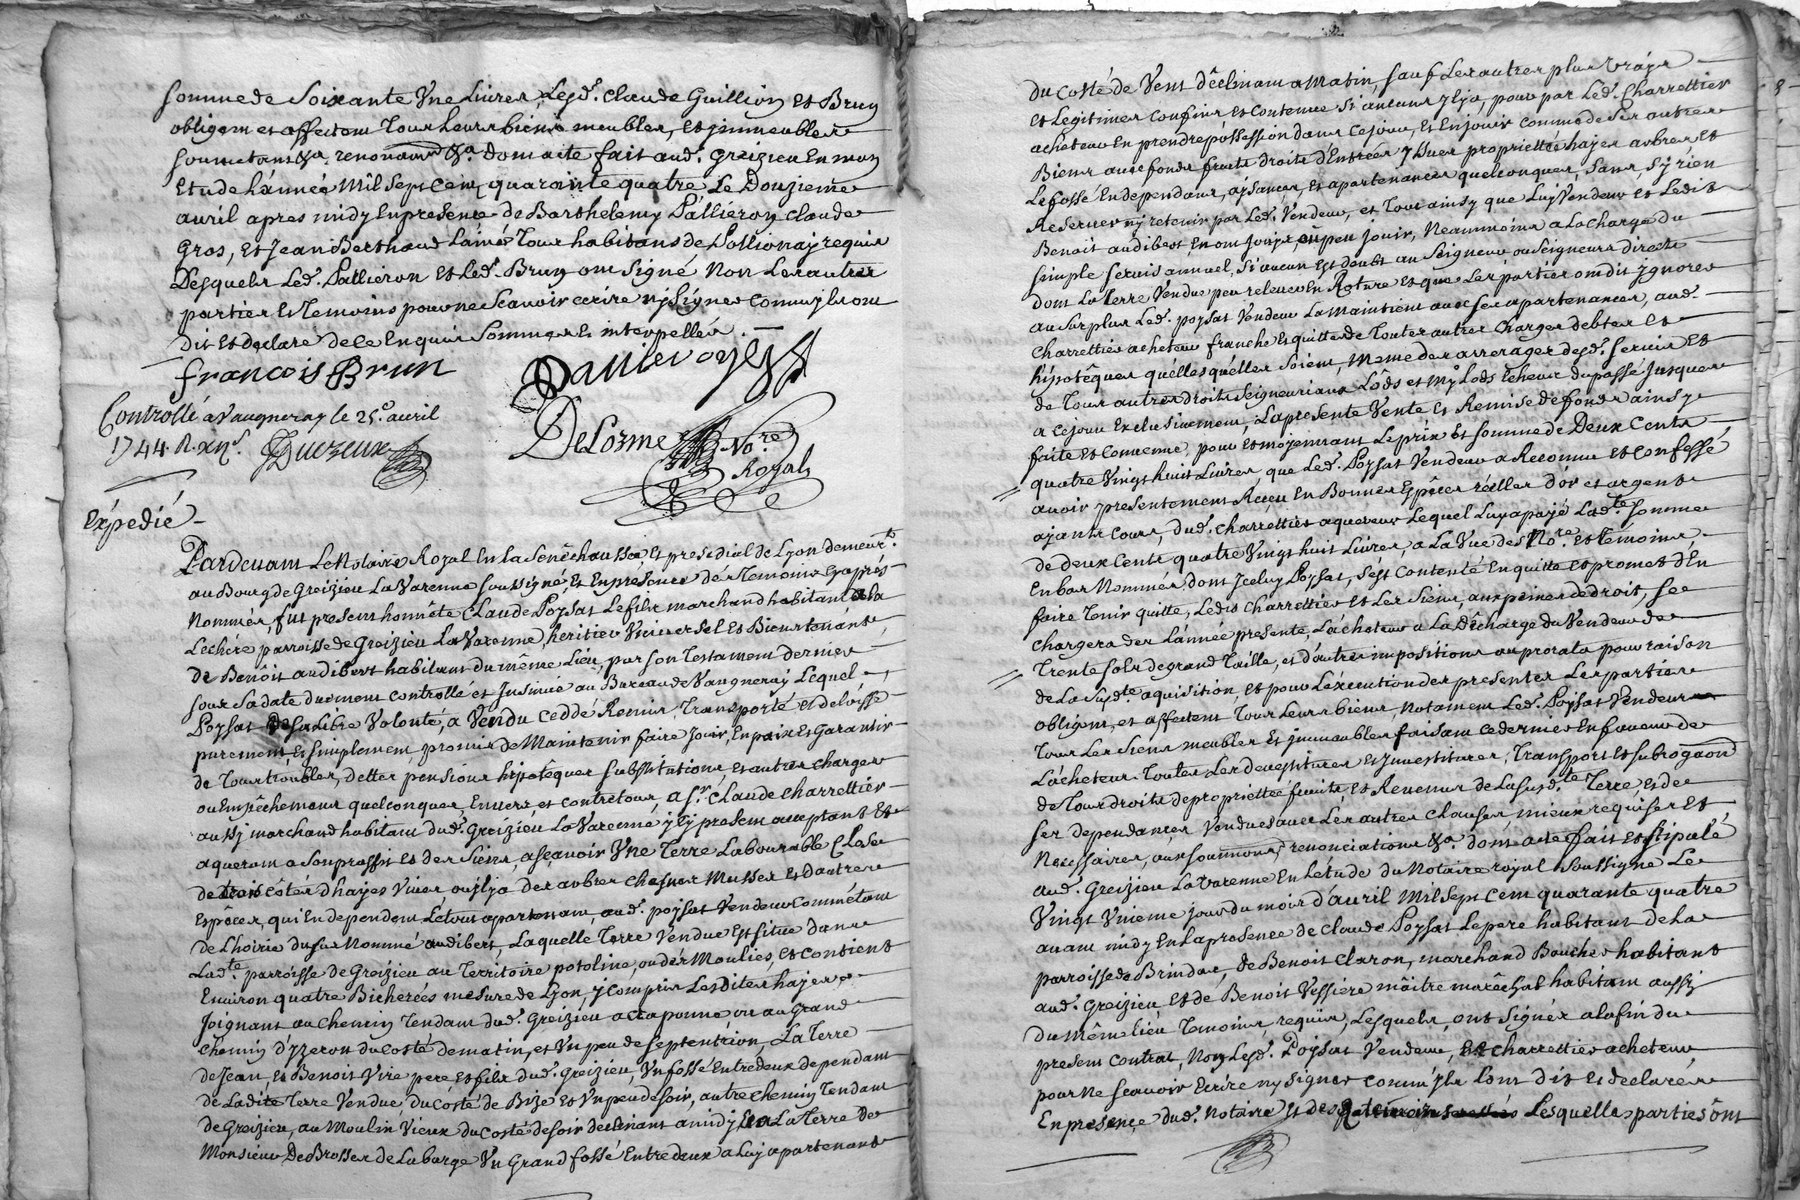 somme de Soixante Une Livres, Lesd. Claude Guillion et Brun
obligent et affectent Tous Leurs biens meubles, et jmmeubles
soumetans &a. renonciaon &a. dont acte fait aud. Greizieu En mon
Etude L'année Mil Sept Cent quarante quatre Le Douzieme
avril apres midy En presence de Barthelemy Pallieron Claude
Gros, Et Jean Berthaud L'ainé Tous habitans de Pollionay requis
Desquels Led. Pallieron Et Led. Brun ont Signé Non Les autres
parties et Temoins pour ne Scavoir ecrire ny Signer Comm'jls ont
dit Et Declaré de ce Enquis Sommés et interpellés .
françois Brun
DeLorme Nore
Royal
Controllé a Vaugneray le 25e avril
1744. R. xijs.
Expedié
Pardevant Le Notaire Royal En la Senêchaussée, Et presidial de Lyon demeurt.
au Bourg de Greizieu La Varenne soussigné, Et En presence des Temoins cy apres
Nommés, fut present honnête Claude Poysat Le fils marchand habitant a la
Lechere parroisse de Greizieu La Varenne, heritier Universel et Bientenant
de Benoit audibert habitant du même Lieu, par son Testament dernier
sous Sa date duement Controllé et Insinué au Bureau de Vaugneray Lequel
Poysat de Sa Libre Volonté, a Vendu Ceddé Remis, Transporté et delaissé
purement, et simplement, promis de Maintenir faire Jouir, En paix et Garantir
de Tous troubles, dettes pensions hipotêques substitutions, et autres charges
ou Empêchemens quelconques Envers et contre tous, a Sr. Claude Charrettier
aussy marchand habitant dud. Greizieu La Varenne jcy present acceptant Et
aquerant a Son proffit et des Siens, a Sçavoir Une Terre Labourable Close
de trois côtés d'hayes Vives ou jl y a des arbres chesnes Musses et d'autres
Espêces, qui En dependent Le tout apartenant, aud. poysat Vendeur Comm'étant
de L'hoirie du feu Nommé audibert, Laquelle Terre Vendue est située dans
Ladte. parroisse de Greizieu au Territoire potoline, ou des Moulies, Et Contient
Environ quatre Bicherées mesure de Lyon, y compris Lesdites hayes
Joignant au Chemin Tendant dud. Greizieu a Craponne ou au Grand
chemin d'Yzeron du Costé de matin, et Un peu de Septentrion, La Terre
de Jean, et Benoit Vire pere et fils dud. Greizieu, Un fossé Entre deux dependant
de Ladite Terre Vendue, du Costé de Bize et Un peu de soir, autre chemin Tendant
de Greizieu, au Moulin Vieux du Costé de soir declinant a midy Et a La Terre de
Monsieur DeBrosses de La barge Un Grand fossé Entre deux a Luy apartenant
du Costé de Vent declinant a Matin, sauf Les autres plus Vrays
et Legitimes Confins et Contenue Si aucuns jl y a, pour par Led. Charrettier
acheteur En prendre possession dans Ce jour, Et En jouir comme de Ses autres
Biens avec fonds fruits droits d'Entrées yssues proprieté hayes arbres, et
Le fossé En dependans, aysances, Et apartenances quelconques, Sans S'y rien
Reserver ny retenir par Led. Vendeur, et Tout ainsy que Luy Vendeur et Ledit
Benoit audibert En ont Jouy ou peu Jouir, Neanmoins a La charge du
simple servis annuel, Si aucun Est deubt au Seigneur ou Seigneurs directs
dont La Terre Vendue peu relever En Roture et que Les parties ont dit jgnorer
au surplus Led. poysat Vendeur La Maintient avec ses apartenances, aud.
Charrettier acheteur franche Et quitte de Toutes autres charges debtes et
hipotêques quelles quelles Soient, Même des arrerages desd. servis Et
de Tous autres droits Seigneuriaux Lôds et My Lods Echeus du passé Jusques
a Ce jour Exclusivement, La presente Vente et Remise de fonds ainsy
faite et Convenue, pour Et moyennant Le prix Et somme de Deux Cents
quatre Vingt huit Livres, que Led. Poysat Vendeur a Reconnu et Confessé
avoir presentement Receu En Bonnes Espêces réelles d'or et argent
ayants Cours, dud. Charrettier aquereur Lequel Luy a payé Ladte. Somme
de Deux Cents quatre Vingt huit Livres, a La Vue des Nore. et Temoins
En bas Nommés dont Jceluy Poysat, S'est Contenté En quitte et promet d'En
faire Tenir quitte, Ledit Charrettier et Les Siens, aux peines de droit, se
chargera dès L'année presente, L'acheteur a La Décharge du Vendeur de
Trente Sols de grand Taille, et d'autres impositions au prorata pour raison
de La Sudte. aquisition, et pour L'execution des presentes Les parties
obligent, et affectent Tous Leurs biens, Notament Led. Poysat Vendeur
Tous Les Siens meubles Et jmmeubles faisant ce dernier En faveur de
L'acheteur Toutes Les devestitures et Jnvestitures, Transport et subrogaon
de Tous droits de proprieté fruits, et Revenus de La Susdte. Terre, et de
ses dependances Vendues avec Les autres Clauses mieux requises Et
Necessaires, aux soumons. renonciations &a. dont acte fait et stipulé
aud. Greizieu La Varenne En L'étude du Notaire royal Soussigné Le
Vingt Unieme jour du mois d'avril Mil Sept Cent quarante quatre
avant midy En La presence de Claude Poysat Le pere habitant de La
parroisse de Brindas, de Benoit Claron, marchand Boucher habitant
aud. Greizieu, et de Benoit Vessiere maître marêchal habitant aussi
du Même Lieu Temoins requis, Lesquels, ont Signés a la fin du
present Contrat, Non Lesd. Poysat Vendeur, Et Charrettier acheteur
pour Ne Scavoir Ecrire ny Signer Comm'jls L'ont dit et declaré
En presence dud. Notaire Et des Lesquelles parties ont